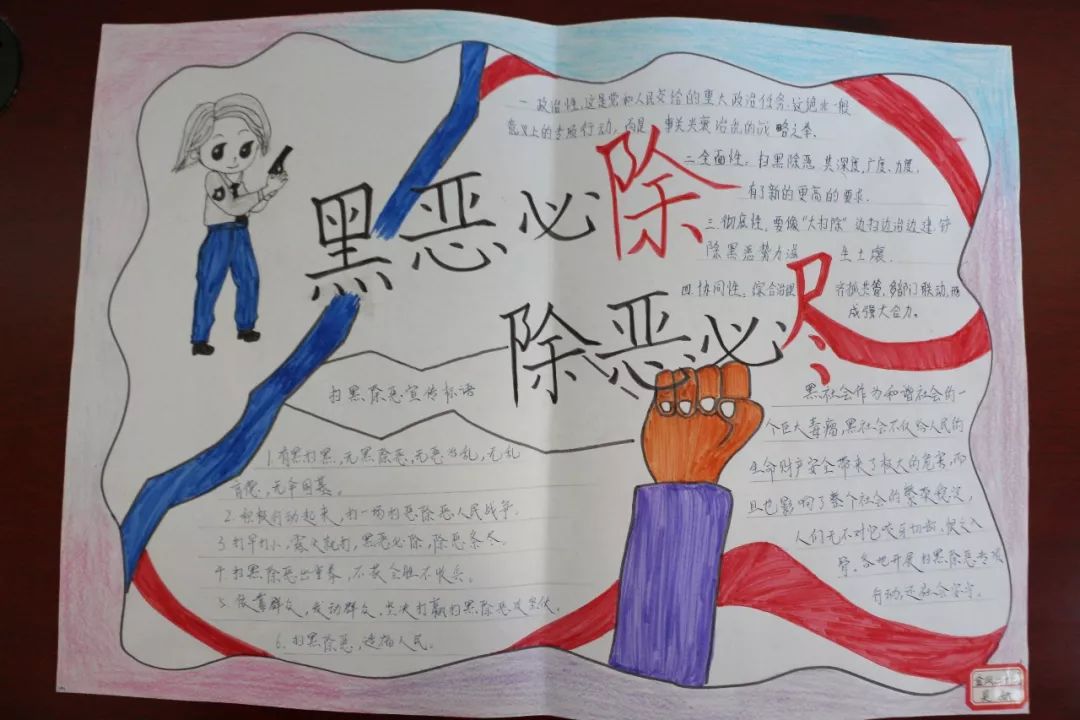 黑恶必除
除恶必尽
一 政治性,这是党和人民交给的重大政治任务,这绝非一般
意义上的专项行动,而是 事关兴衰治乱的战略之举.
二全面性:扫黑除恶 其深度,广度、力度,
有了新的更高的要求.
三.彻底性,要像“大扫除”边扫边治边建,铲
除黑恶势力滋 生土壤.
四.协同性:综合治理 齐抓共管,多部门联动,形
成强大合力。
扫黑除恶宣传标语
1.有黑打黑,无黑除恶,无恶治乱,无乱
2.积极行动起来,打一场扫恶除恶人民战争.
3.打早打小,露头就打,黑恶必除,除恶务尽.
4.扫黑除恶出重拳,不获全胜不收兵。
5.依靠群众,发动群众,坚决打赢扫黑除恶攻坚仗.
6.扫黑除恶,造福人民.
黑社会作为和谐社会的一
个巨大毒瘤,黑社会不仅给人民的
生命财产安全带来了极大的危害,而
且也影响了整个社会的繁荣稳定,
人们无不对它咬牙切齿,恨之入
骨.各地开展扫黑除恶专项
行动,还社会安宁.